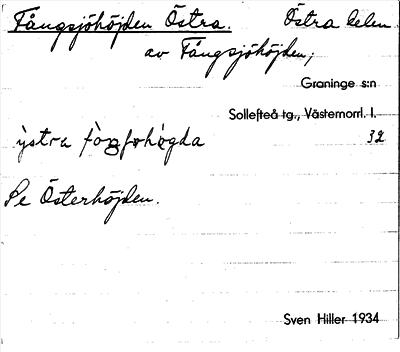 Fångsjöhöjden Östra. Östra delen
av Fångsjöhöjden;
Graninge s:n
Sollefteå tg., Västernorrl. l.
32
ỳstra
Se Österhöjden.
Sven Hiller 1934